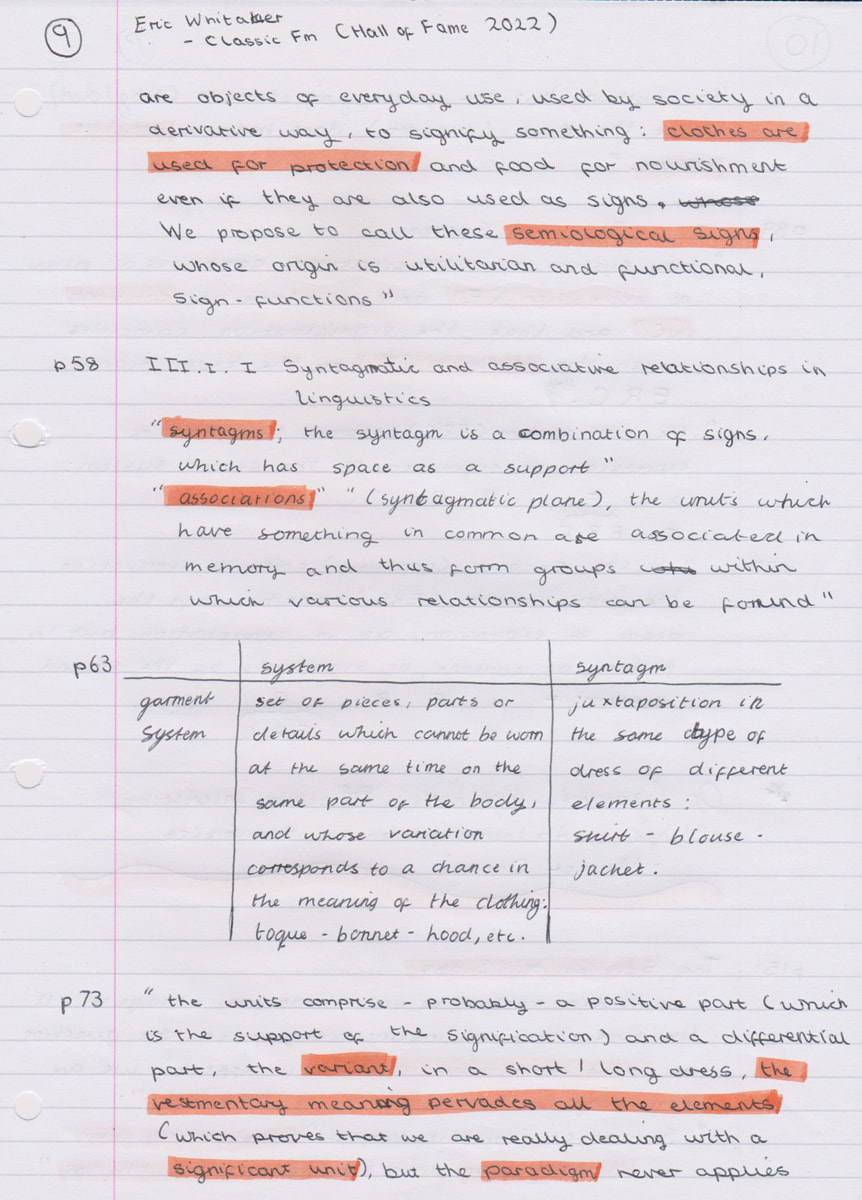 9
Eric Whitaker
- Classic Fm (Hall of Fame 2022)
are objects of everyday use, used by society in a
derivative way, to signify something: clothes are
used for protection and food for nourishment
even if they are also used as signs. whose
We propose to call these semiological signs,
whose origin is utilitarian and functional,
sign-functions"
p58 III.I.I Syntagmatic and associative relationships in
linguistics
"syntagms; the syntagm is a combination of signs,
which has space as a support"
"associations" "(syntagmatic plane), the units which
have something in common are associated in
memory and thus form groups within
which various relationships can be found"
p63 system syntagm
garment system
set of pieces, parts or
details which cannot be worn
at the same time on the
same part of the body,
and whose variation
corresponds to a chance in
the meaning of the clothing:
toque - bonnet - hood, etc.
juxtaposition in
the same type of
dress of different
elements:
skirt - blouse -
jacket.
p73 "the units comprise - probably - a positive part (which
is the support of the signification) and a differential
part, the variant, in a short / long dress, the
vestmentary meaning pervades all the elements
(which proves that we are really dealing with a
significant unit), but the paradigm never applies